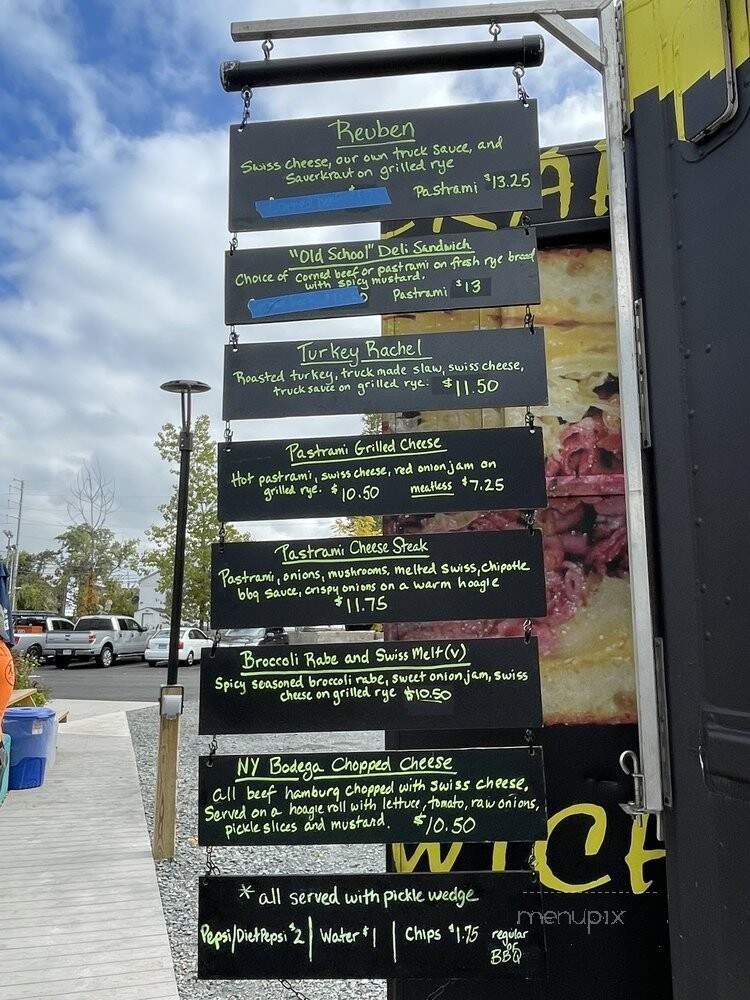 Reuben
Swiss cheese, our own truck sauce, and
Sauerkraut on grilled rye
Pastrami $13.25
"Old School" Deli Sandwich
Choice of corned beef or pastrami on fresh rye bread
with spicy mustard.
Pastrami $13
Turkey Rachel
Roasted turkey, truck made slaw, swiss cheese,
truck sauce on grilled rye. $11.50
Pastrami Grilled Cheese
Hot pastrami, swiss cheese, red onion jam on
grilled rye. $10.50 meatless $7.25
Pastrami Cheese Steak
Pastrami, onions, mushrooms, melted swiss, chipotle
bbq sauce, crispy onions on a warm hoagie
$11.75
Broccoli Rabe and Swiss Melt (v)
Spicy seasoned broccoli rabe, sweet onion jam, swiss
cheese on grilled rye $10.50
NY Bodega Chopped Cheese
all beef hamburg chopped with swiss cheese.
Served on a hoagie roll with lettuce, tomato, raw onions,
pickle slices and mustard. $10.50
* all served with pickle wedge
Pepsi/Diet Pepsi $2 | Water $1 | Chips $1.75 regular
or
BBQ
WICH
menupix